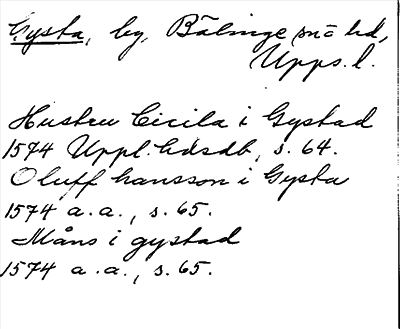 Gysta, by, Bälinge sn o hd,
Upps. l.
Hustru Cicila i Gystad
1574 Uppl. hdsdb, s. 64.
Oluff hansson i Gysta
1574 a.a., s. 65.
Måns i gystad
1574 a.a., s. 65.